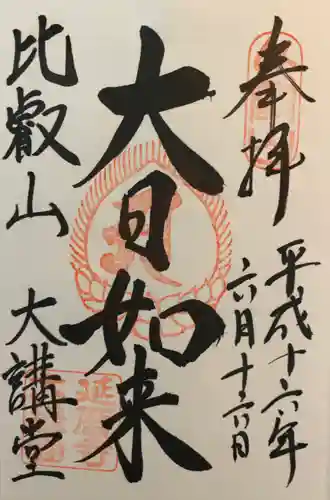 奉拝
平成十六年
六月十六日
大日如来
比叡山
大講堂